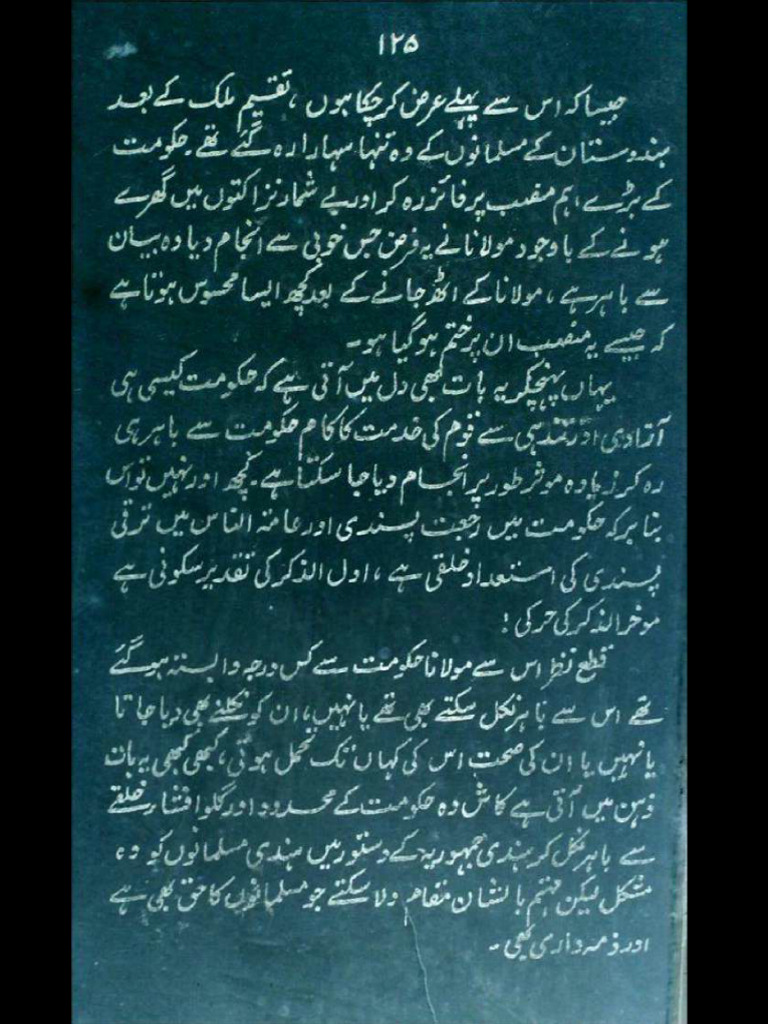 ۱۲۵
جیسا کہ اس سے پہلے عرض کر چکا ہوں ، تقسیم ملک کے بعد
ہندوستان کے مسلمانوں کے وہ تنہا سہارا رہ گئے تھے۔ حکومت
کے بڑے اہم منصب پر فائز رہ کر اور بے شمار نزاکتوں میں گھرے
ہونے کے باوجود مولانا نے یہ فرض جس خوبی سے انجام دیا وہ بیان
سے باہر ہے ، مولانا کے اٹھ جانے کے بعد کچھ ایسا محسوس ہوتا ہے
کہ جیسے یہ منصب ان پر ختم ہو گیا ہو۔
یہاں پہنچکر یہ بات بھی دل میں آتی ہے کہ حکومت کیسی ہی
آزادی اور تندہی سے قوم کی خدمت کا کام حکومت سے باہر ہی
رہ کر زیادہ موثر طور پر انجام دیا جا سکتا ہے۔ کچھ اور نہیں تو اس
بنا پر کہ حکومت میں رجعت پسندی اور عامتہ الناس میں ترقی
پسندی کی استعداد خلقی ہے ، اول الذکر کی تقدیر سکونی ہے
موخر الذکر کی حرکی !
قطع نظر اس سے مولانا حکومت سے کس درجہ وابستہ ہو گئے
تھے اس سے باہر نکل سکتے بھی تھے یا نہیں ، ان کو نکلنے بھی دیا جاتا
یا نہیں یا ان کی صحت اس کی کہاں تک متحمل ہوتی ، کبھی کبھی یہ بات
ذہن میں آتی ہے کاش وہ حکومت کے محدود اور گلو افشار حلقے
سے باہر نکل کر ہندی جمہوریہ کے دستور میں ہندی مسلمانوں کو وہ
مشکل لیکن مہتم بالشان مقام دلا سکتے جو مسلمانوں کا حق بھی ہے
اور ذمہ داری بھی ۔